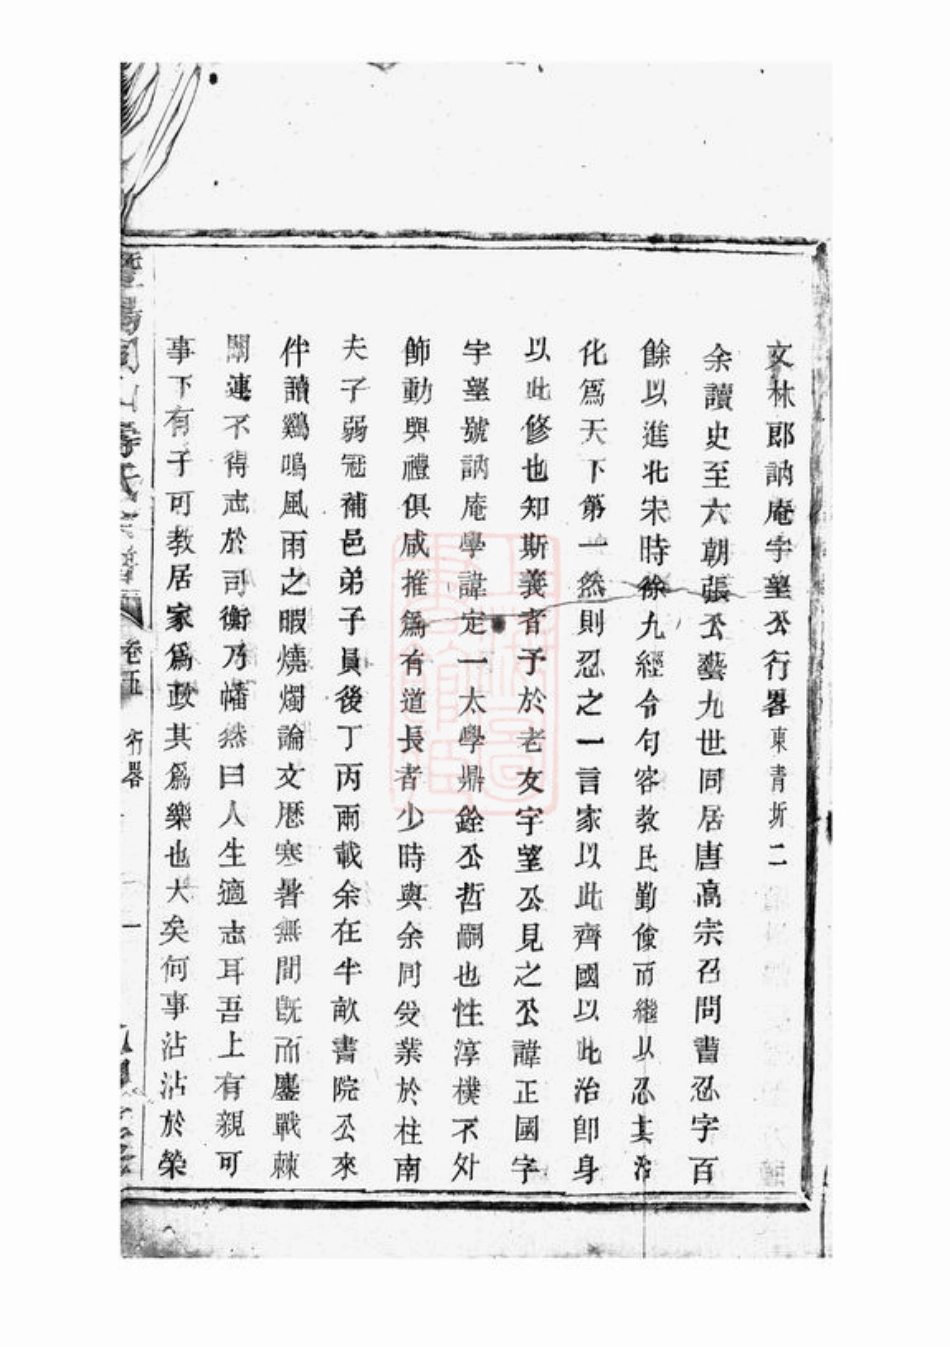 文林郎訥庵宇望公行畧東青圻二
余讀史至六朝張公藝九世同居唐高宗召問書忍字百
餘以進北宋時徐九經令句容教民勤儉而繼以忍其治
化爲天下第一然則忍之一言家以此齊國以此治卽身
以此修也知斯義者予於老友宇望公見之公諱正國字
宇望號訥庵學諱定一太學鼎銓公哲嗣也性淳樸不外
飾動與禮俱咸推爲有道長者少時與余同受業於柱南
夫子弱冠補邑弟子員後丁丙兩載余在半畝書院公來
伴讀鷄鳴風雨之暇燒燭論文歷寒暑無間旣而鏖戰棘
闈連不得志於司衡乃幡然曰人生適志耳吾上有親可
事下有子可教居家爲政其爲樂也大矣何事沾沾於榮
氏宗譜
卷五
行畧
一